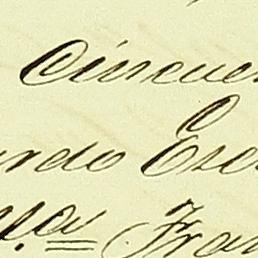 Cincue
ardo Esc
a Fran